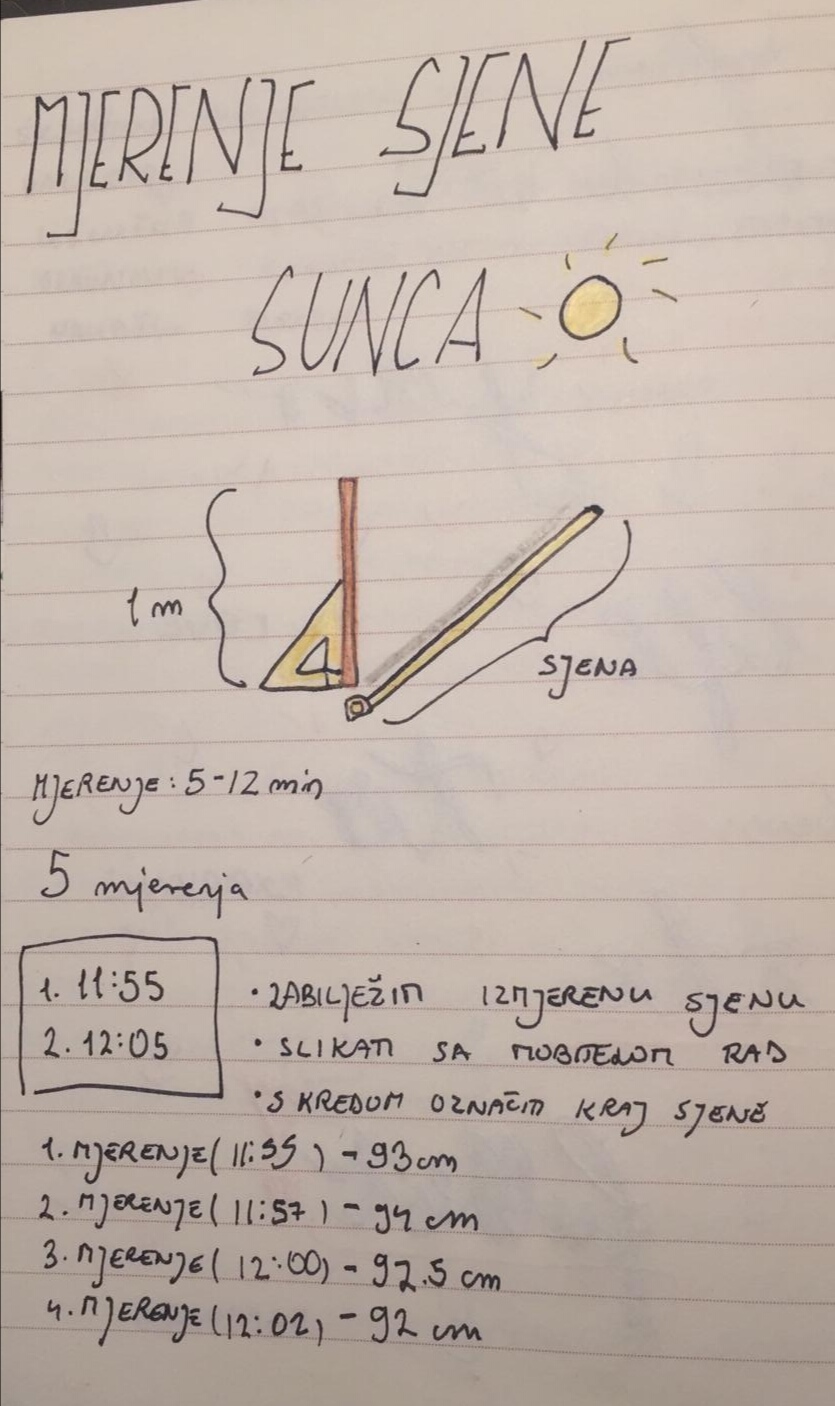 MJERENJE SJENE
SUNCA
1 m
SJENA
MJERENJE: 5-12 min
5 mjerenja
1. 11:55
2. 12:05
• ZABILJEŽITI IZMJERENU SJENU
• SLIKATI SA MOBITELOM RAD
• S KREDOM OZNAČITI KRAJ SJENE
1. MJERENJE (11:55) - 93 cm
2. MJERENJE (11:57) - 94 cm
3. MJERENJE (12:00) - 92.5 cm
4. MJERENJE (12:02) - 92 cm